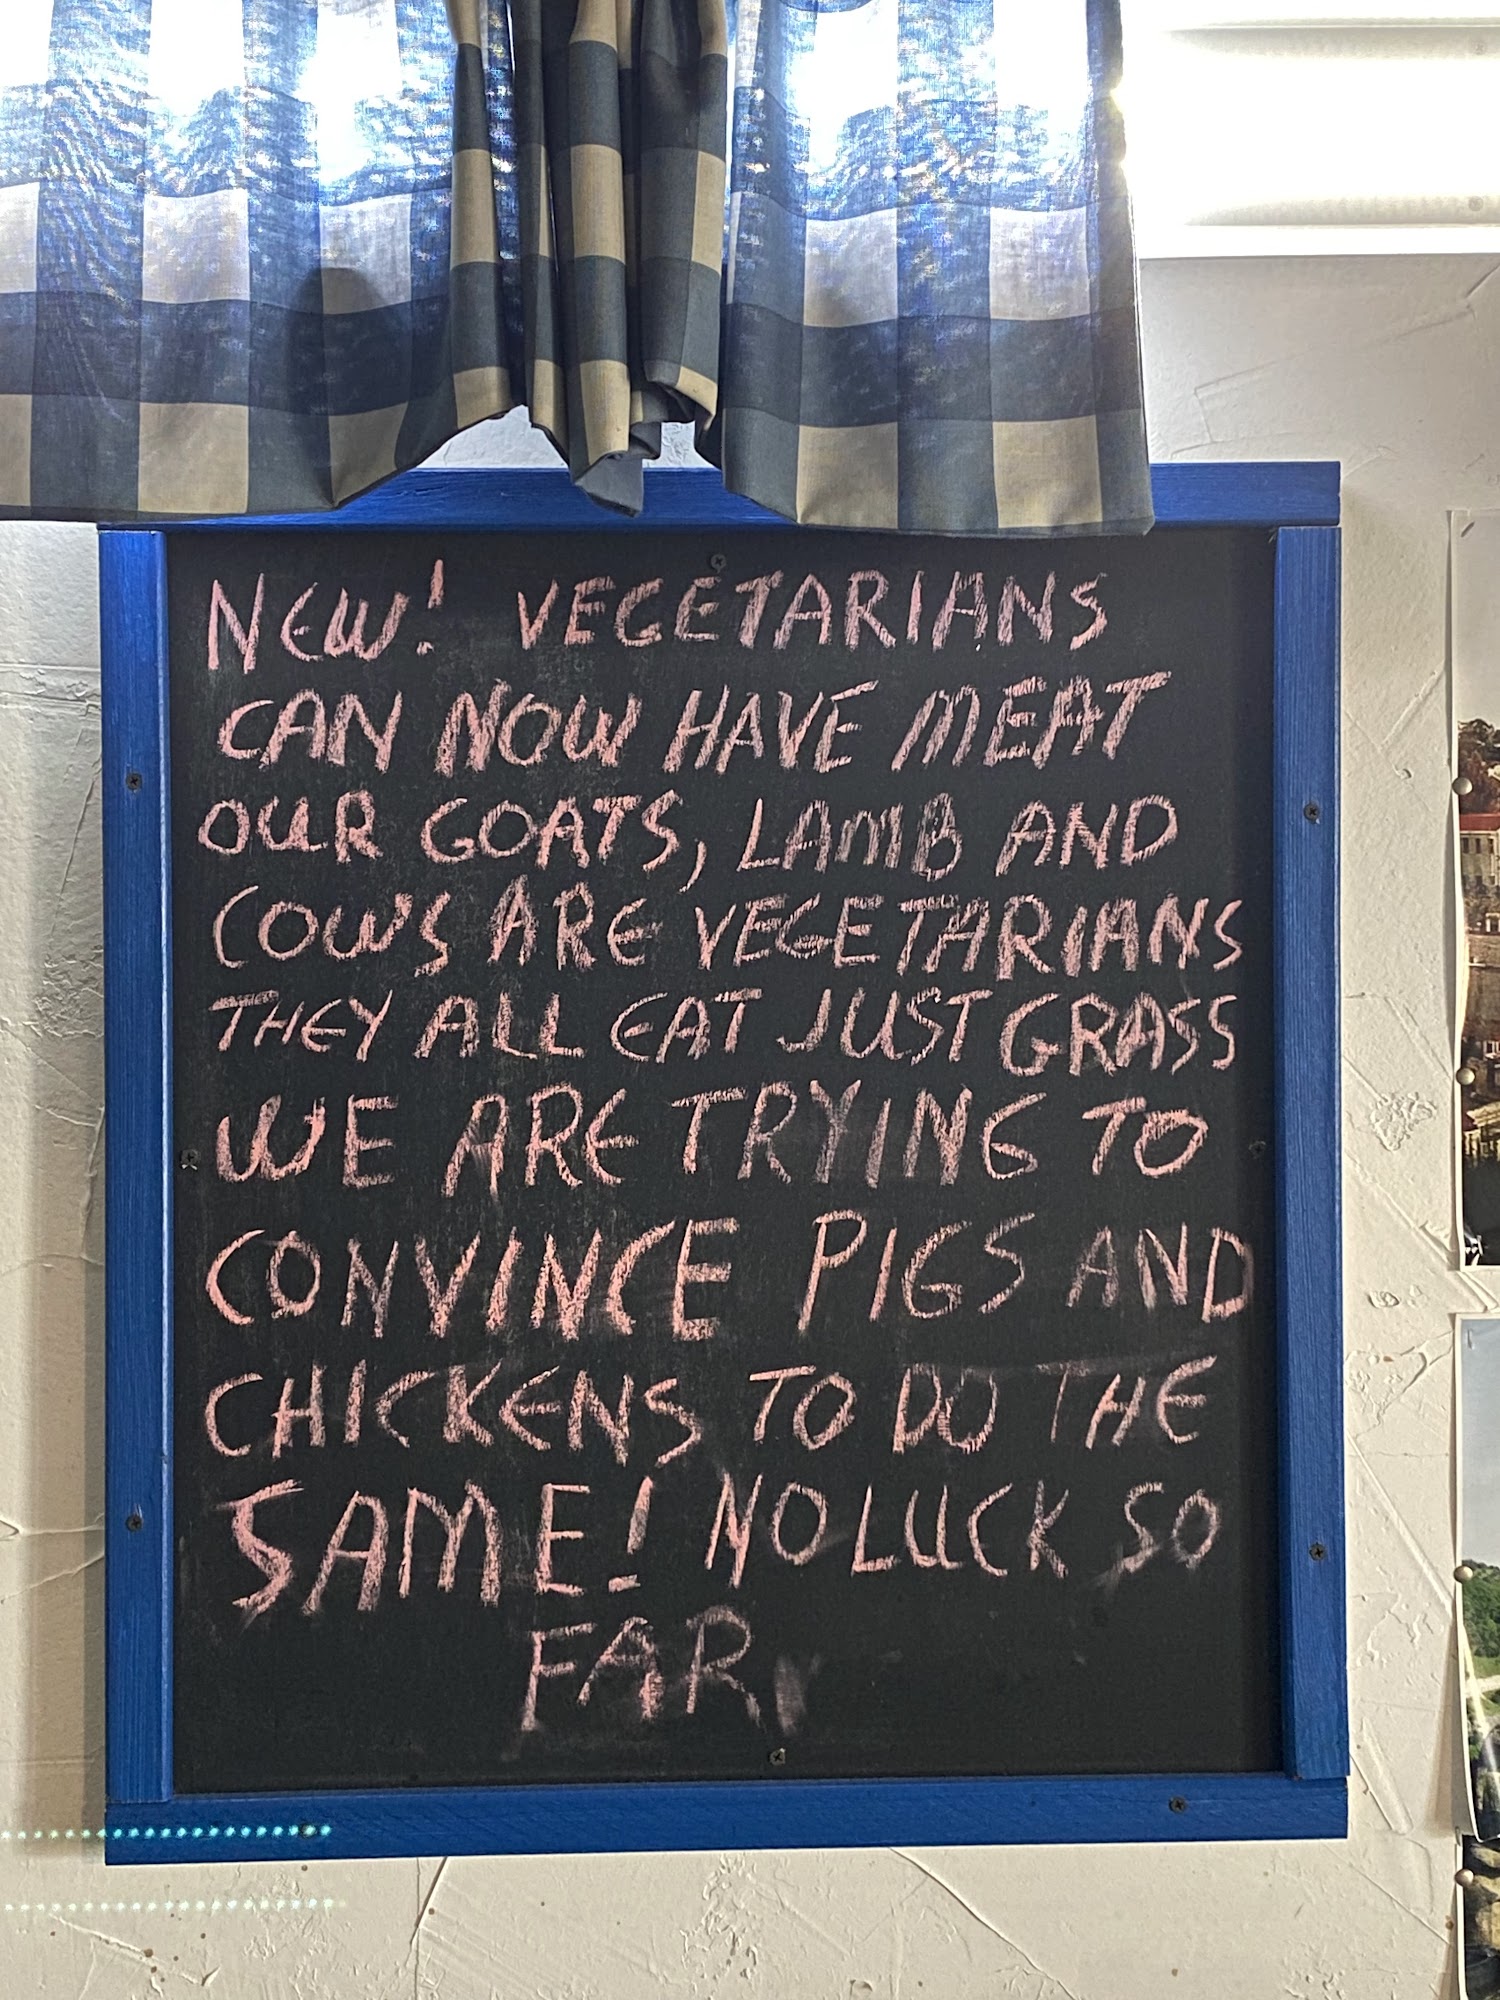 NEW! VEGETARIANS
CAN NOW HAVE MEAT
OUR GOATS, LAMB AND
COWS ARE VEGETARIANS
THEY ALL EAT JUST GRASS
WE ARE TRYING TO
CONVINCE PIGS AND
CHICKENS TO DO THE
SAME! NO LUCK SO
FAR,